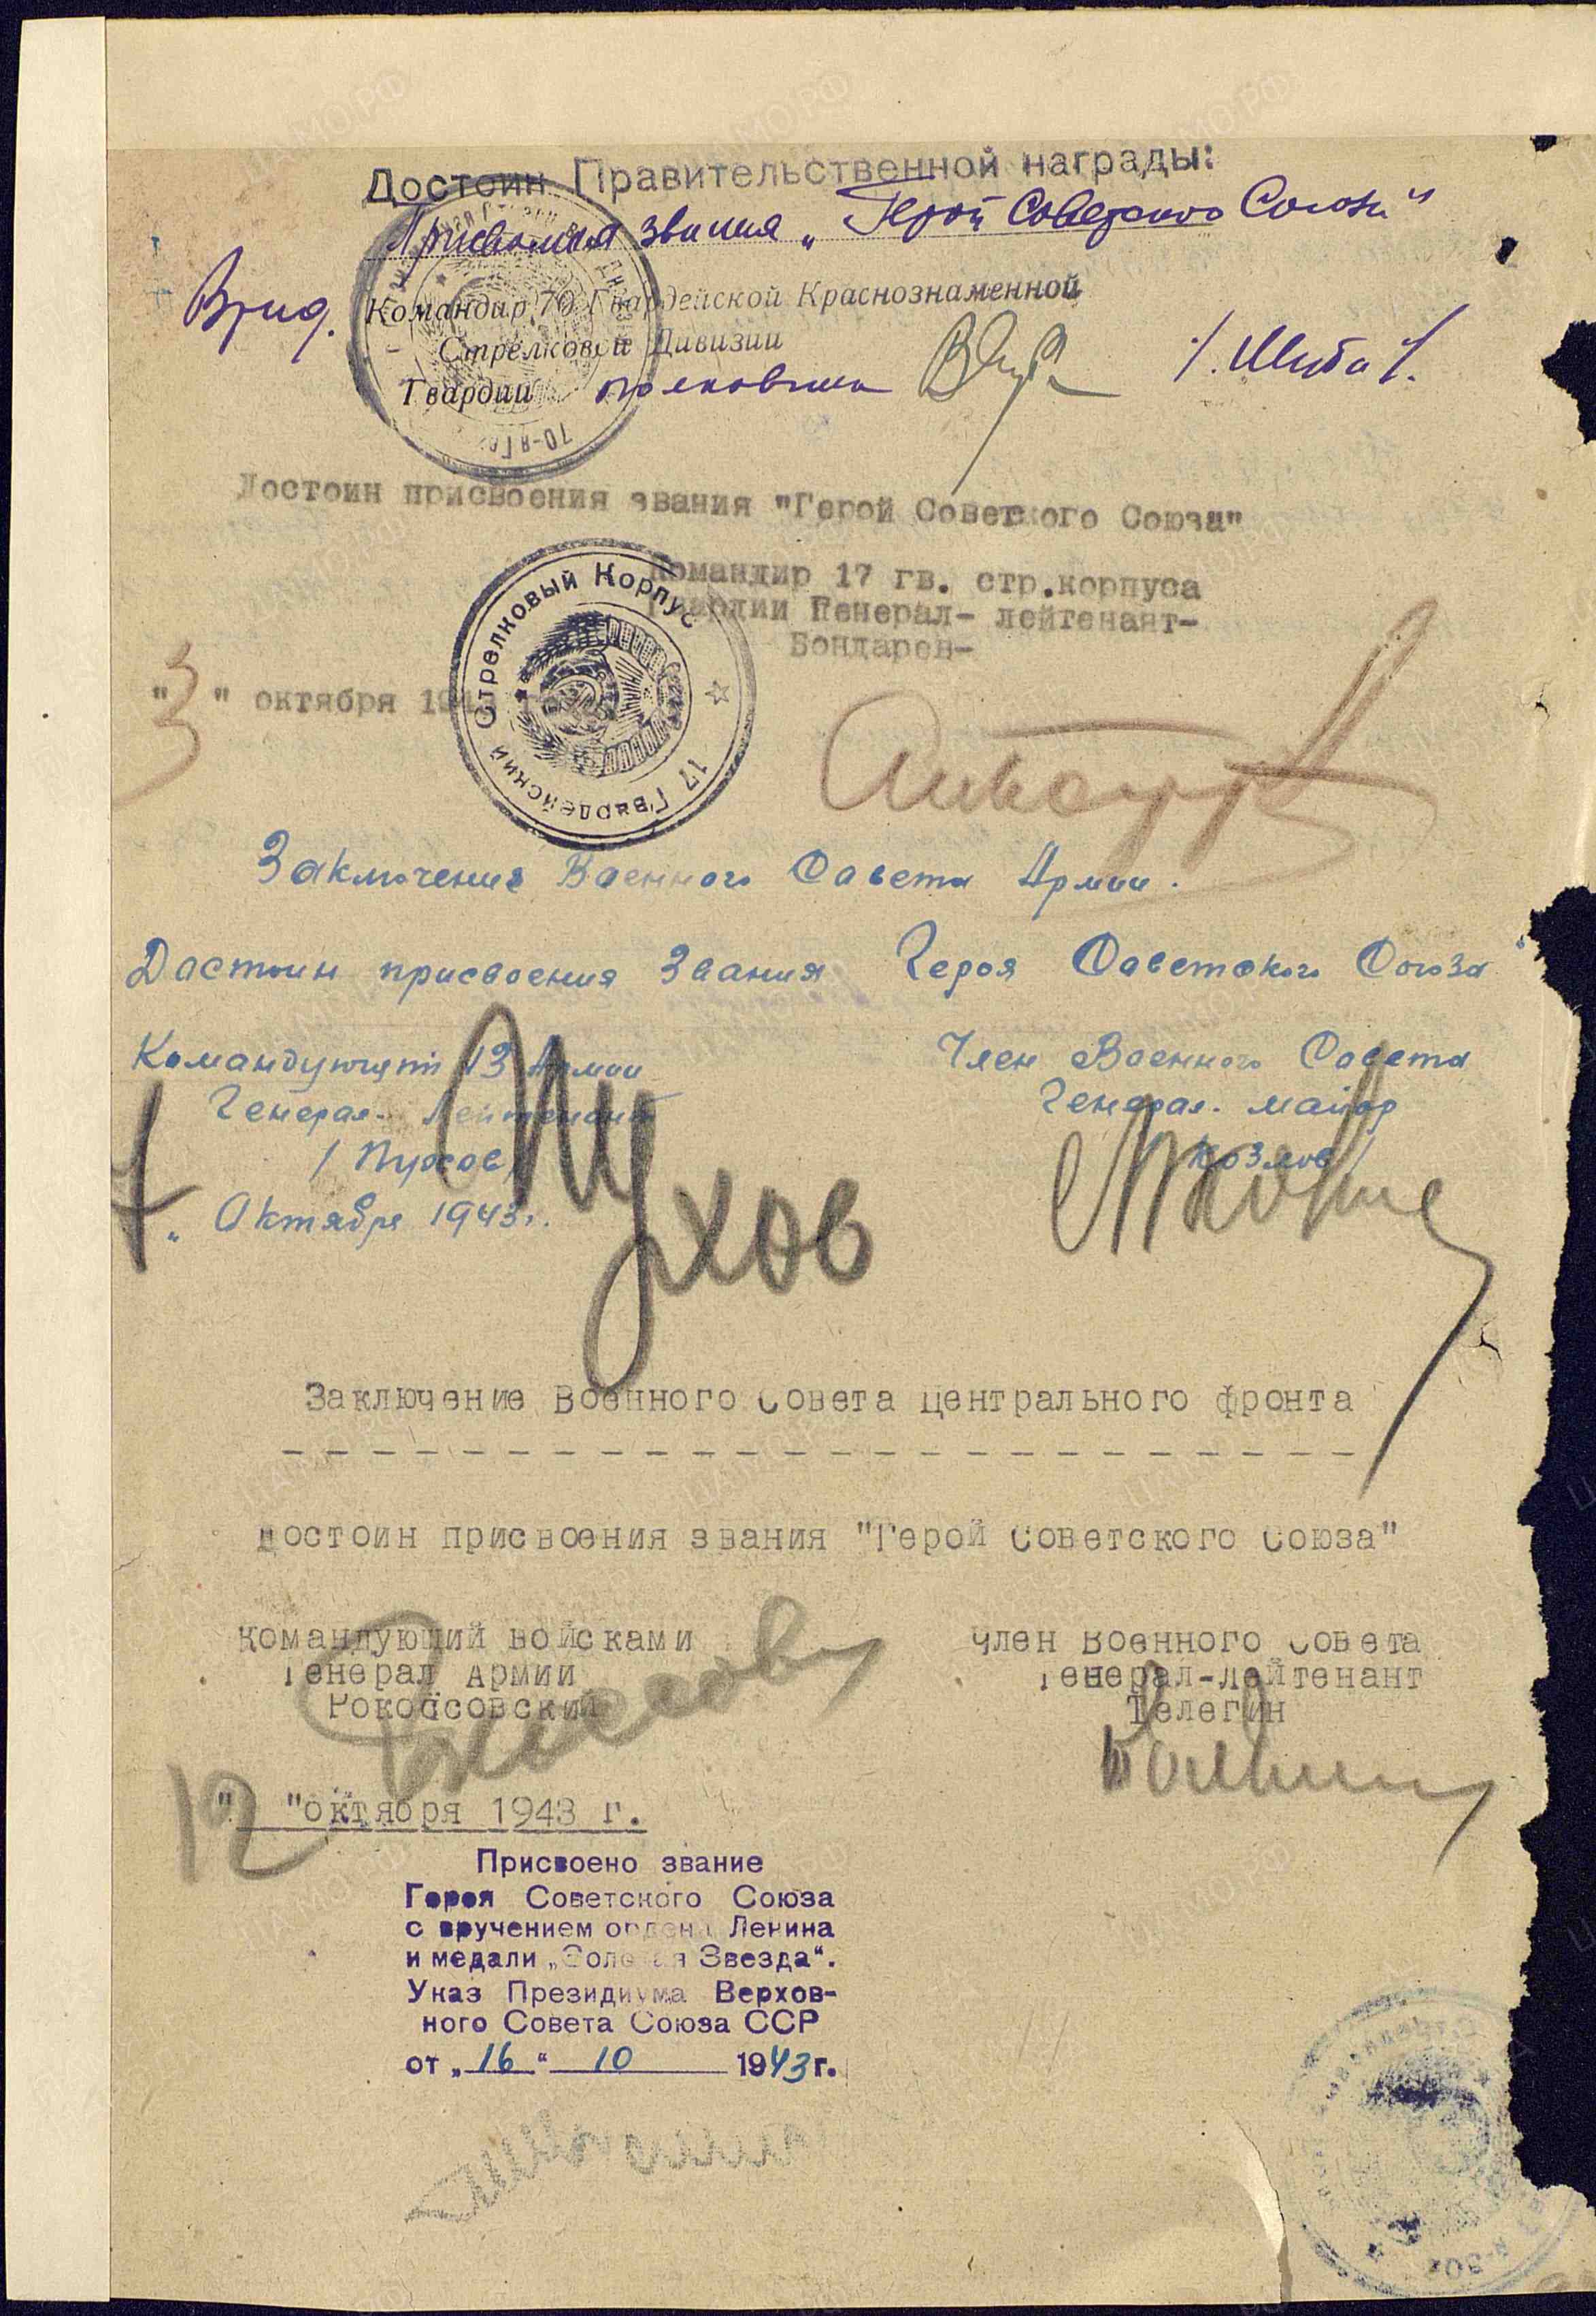 Достоин Правительственной награды:
Присвоения звания „Герой Советского Союза"
Врид. Командир 70 Гвардейской Краснознаменной
Стрелковой Дивизии
Гвардии полковник
70-я
Достоин присвоения звания "Герой Советского Союза"
Командир 17 гв. стр.корпуса
Гвардии Генерал- лейтенант-
Бондарев-
"3" октября 1943
17 Гвардейский Стрелковый Корпус
Заключение Военного Совета Армии.
Достоин присвоения Звания Героя Советского Союза
Командующий 13 Армии
Генерал- Лейтенант
/Пухов/
Пухов
7 „ Октября 1943г.
Член Военного Совета
Генерал- майор
Козлов/
Заключение Военного Совета Центрального фронта
Достоин присвоения звания "Герой Советского Союза"
Командующий войсками
Генерал Армии
Рокоссовский
"12"октября 1943 г.
Член Военного Совета
Генерал-Лейтенант
Телегин
Присвоено звание
Героя Советского Союза
с вручением ордена Ленина
и медали „Золотая Звезда“.
Указ Президиума Верхов-
ного Совета Союза ССР
от „16“ 10 1943г.
ЦАМО РФ